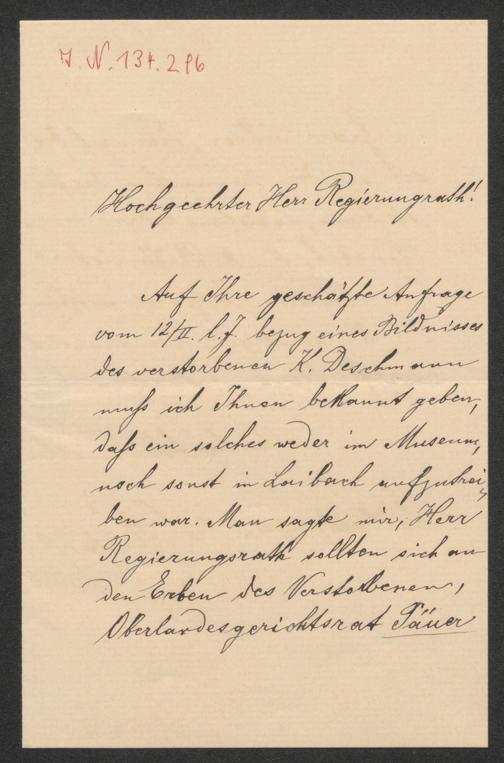 I. N. 134.296
Hochgeehrter Herr Regierungrath!
Auf Ihre geschätzte Anfrage
vom 12/II. l. J. bezug eines Bildnisses
des verstorbenen K. Deschmann
muß ich Ihnen bekannt geben,
daß ein solches weder im Museum,
noch sonst in Laibach aufzutrei-
ben war. Man sagte mir, Herr
Regierungsrath sollten sich an
den Erben des Verstorbenen,
Oberlandesgerichtsrat